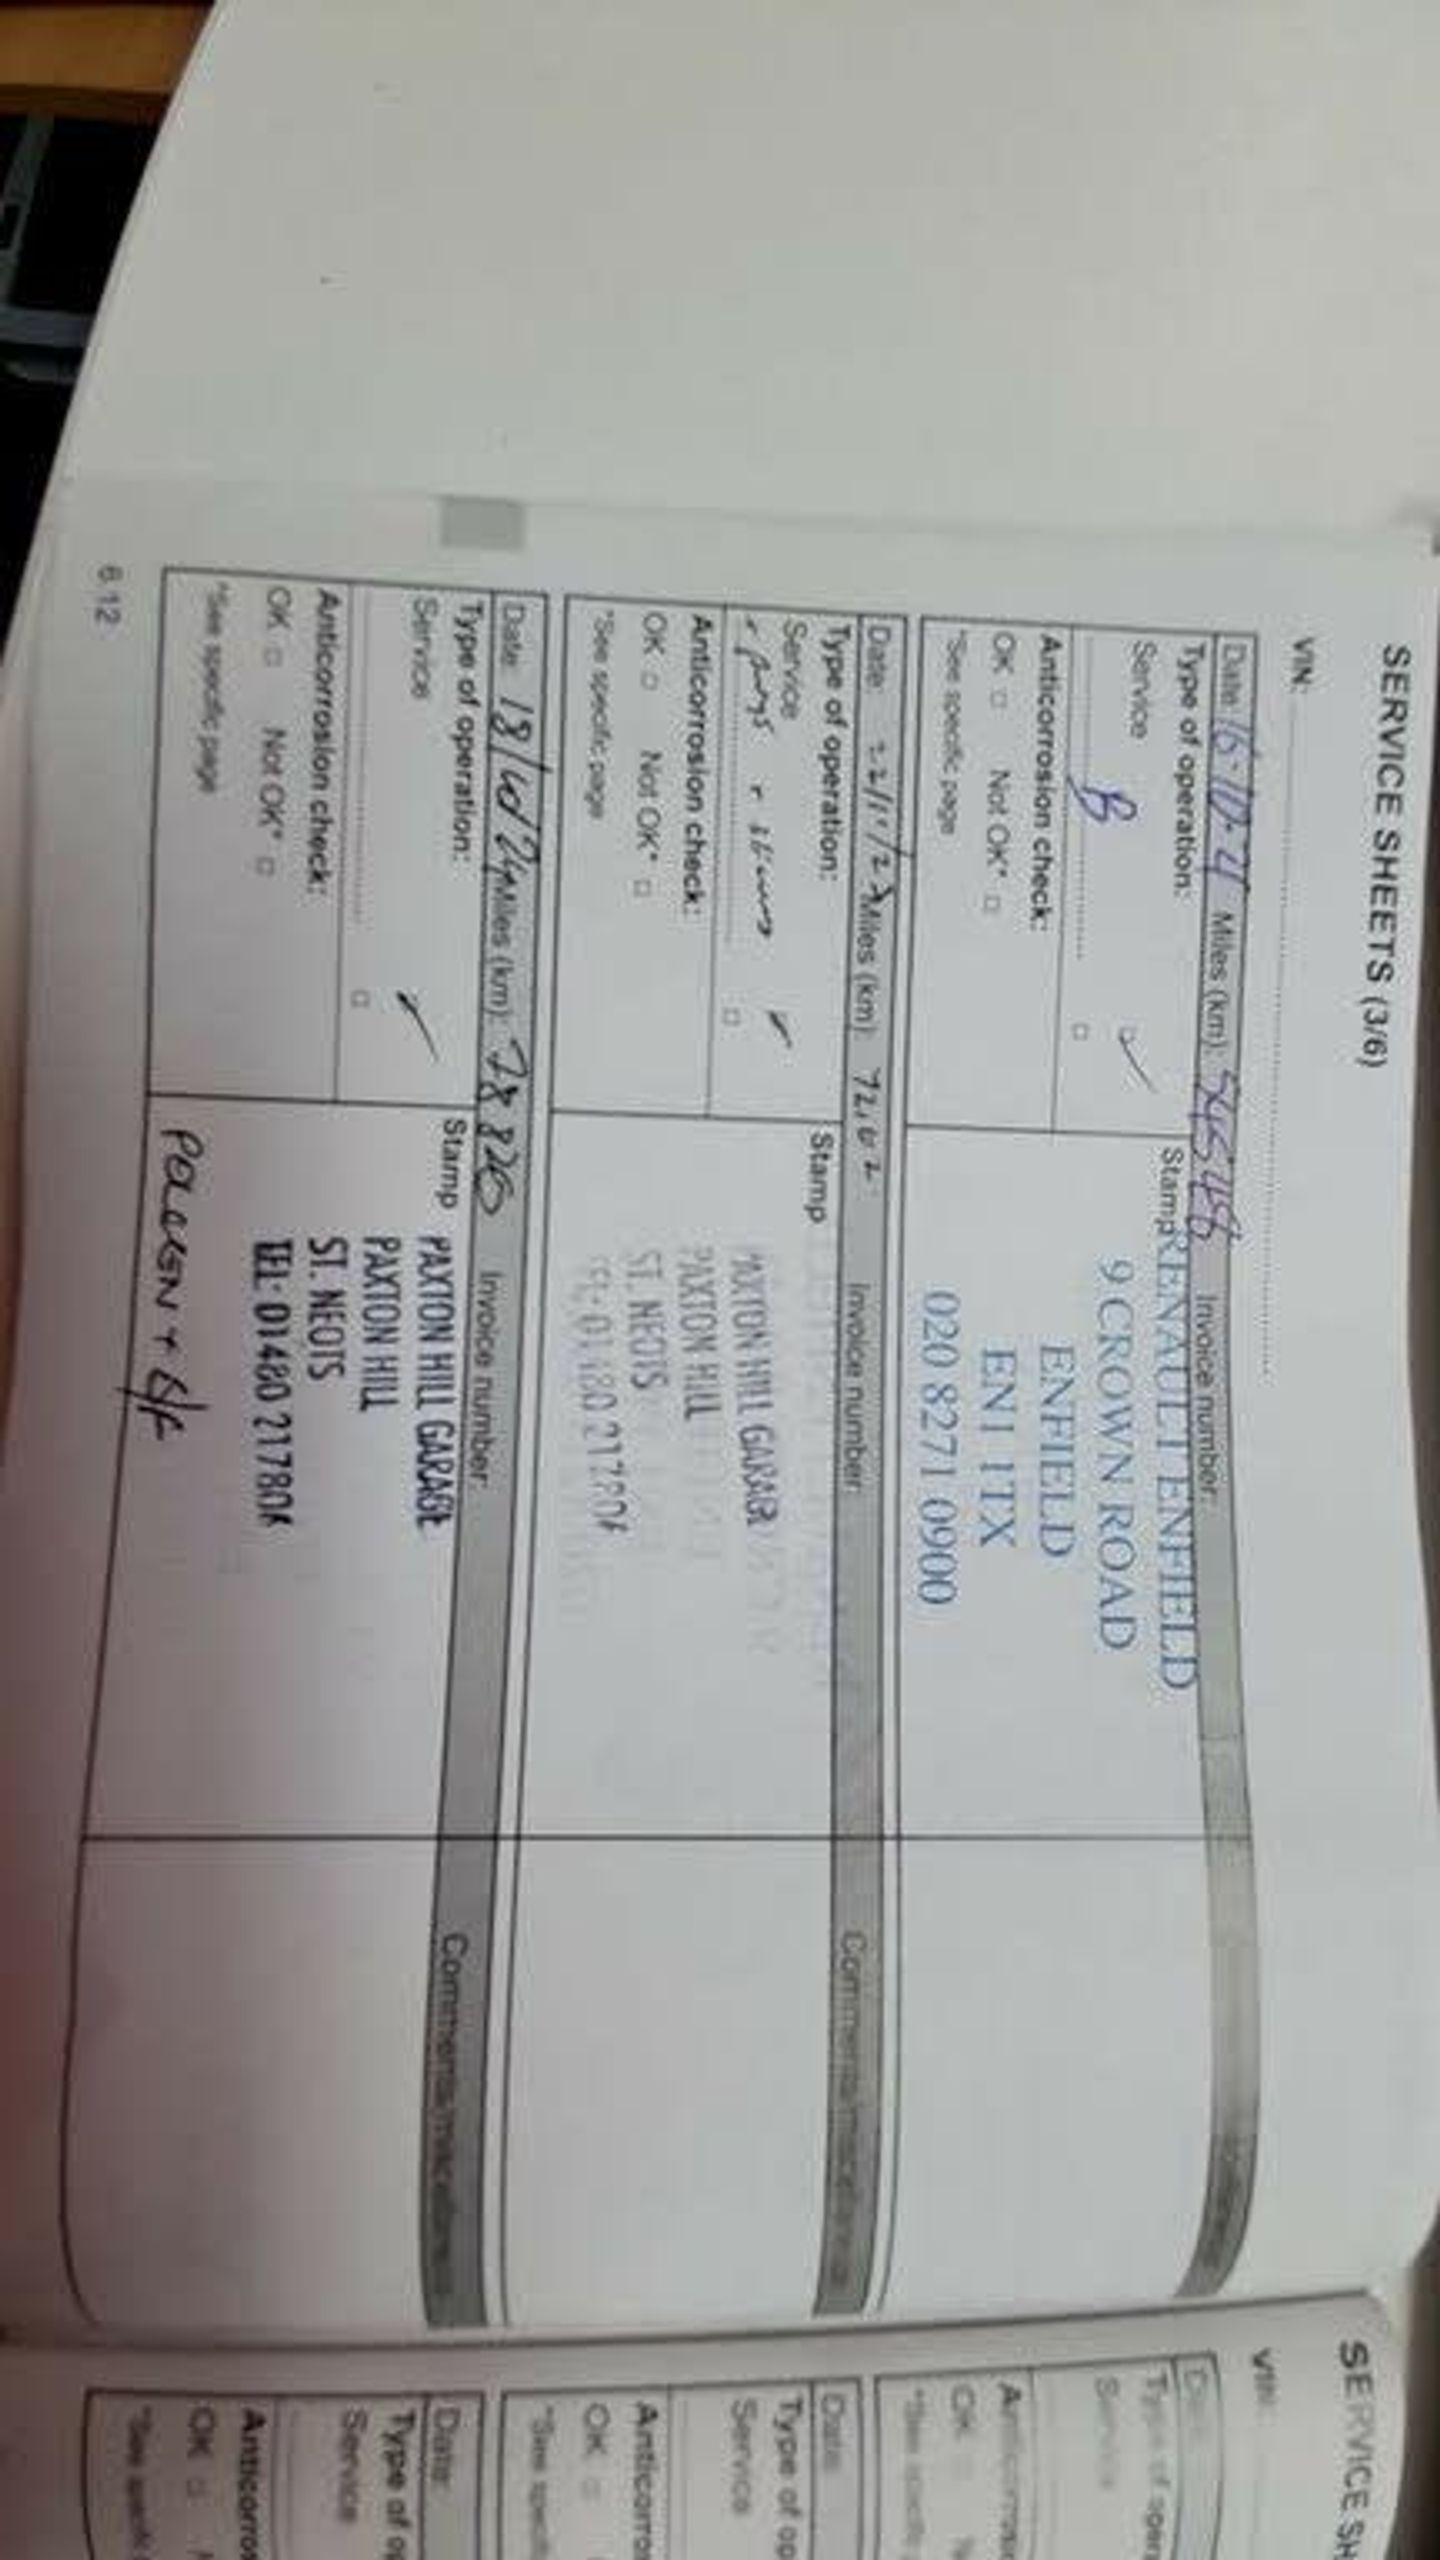 SERVICE SHEETS (3/6)
VIN:
Date: 16.10.21 Miles (km): Invoice number:
Type of operation: Stamp RENAULT ENFIELD
Service 9 CROWN ROAD
B ENFIELD
Anticorrosion check: EN1 1TX
OK □ Not OK* □ 020 8271 0900
*See specific page
Date: Miles (km): Invoice number: Comments/indications
Type of operation: Stamp
Service PAXTON HILL GARAGE
PAXTON HILL
Anticorrosion check: ST. NEOTS
OK □ Not OK* □
*See specific page
Date: Miles (km): 78820 Invoice number: Comments/indications
Type of operation: Stamp PAXTON HILL GARAGE
Service PAXTON HILL
ST. NEOTS
Anticorrosion check: TEL: 01480 217804
OK □ Not OK* □
*See specific page POLLEN +
6.12
SERVICE SH
VIN:
Date:
Type of opera
Service
OK □
Date:
Type of op
Service
Anticorros
OK □
*See specif
Date:
Type of op
Service
Anticorros
OK □
*See specific